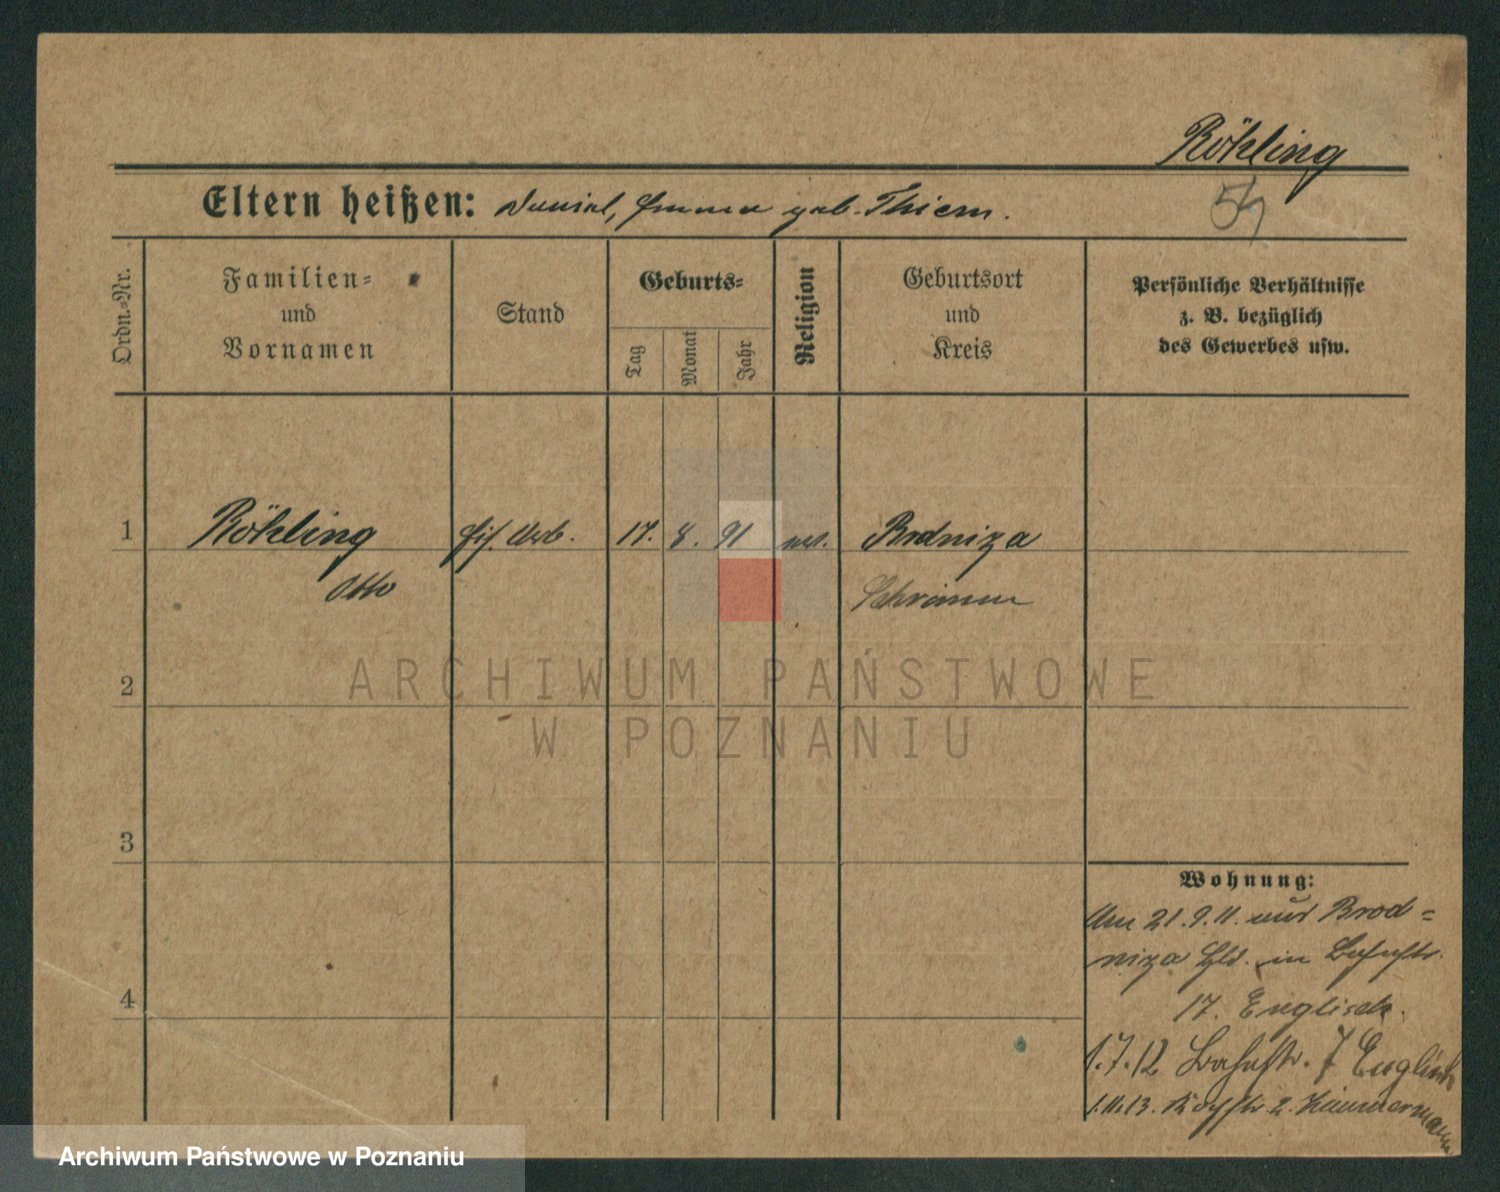 Röhling
54
Eltern heißen: Daniel, Emma geb. Thiem.
Ordn.=Nr.
Familien=
und
Vornamen
Stand
Geburts=
Tag
Monat
Jahr
Religion
Geburtsort
und
Kreis
Persönliche Verhältnisse
z. B. bezüglich
des Gewerbes usw.
1 Röhling Eis. Arb. 17. 8. 91 ev. Brodniza
Otto Schrimm
2
3
4
Wohnung:
Am 21.9.11. aus Brod=
niza in Bahnstr.
17. Englisch.
1.7.12 Bahnstr. 7 Englisch
1.11.13. 2. Kämmermann
ARCHIWUM PAŃSTWOWE
W POZNANIU
Archiwum Państwowe w Poznaniu